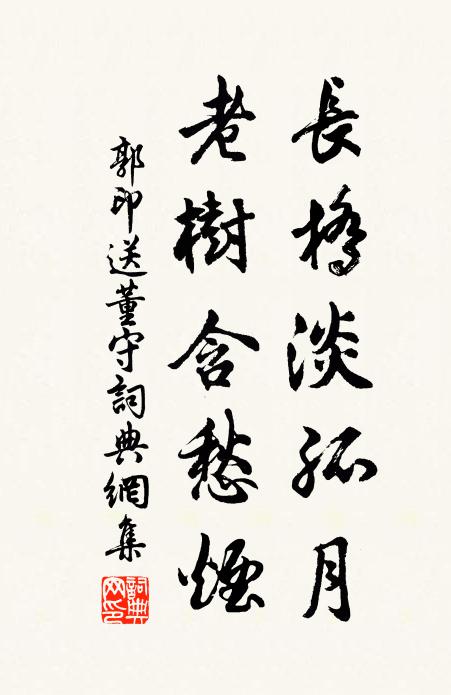 長橋淡孤月
老樹含愁煙
郭印送董守詞典網集
詞典网印